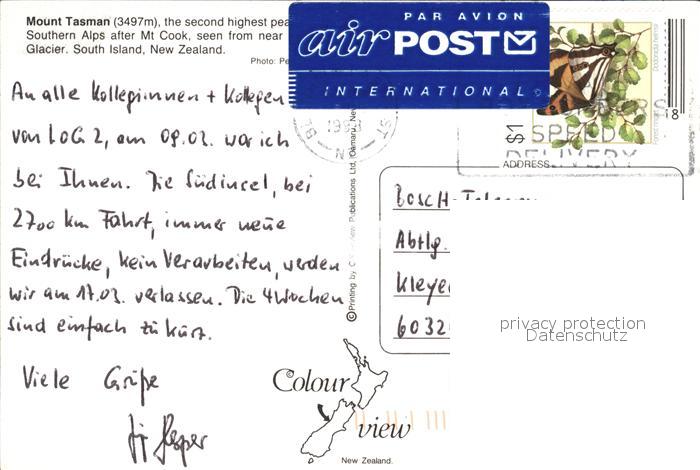 Mount Tasman (3497m), the second highest pea
Southern Alps after Mt Cook, seen from near
Glacier. South Island, New Zealand.
Photo: Pe
PAR AVION
air POST
INTERNATIONAL
$1
1993
SPEED
DELIVERY
ADDRESS
An alle Kolleginnen + Kollegen
von LOG 2, am 09.03. war ich
bei Ihnen. Die Südinsel, bei
2700 km Fahrt, immer neue
Eindrücke, kein Verarbeiten, werden
wir am 17.03. verlassen. Die 4 Wochen
sind einfach zu kurz.
Viele Grüße
©Printing by Publications Ltd, Oamaru, New
BOSCH-
Abtlg.
Kleye
6032
privacy protection
Datenschutz
Colour
view
New Zealand.